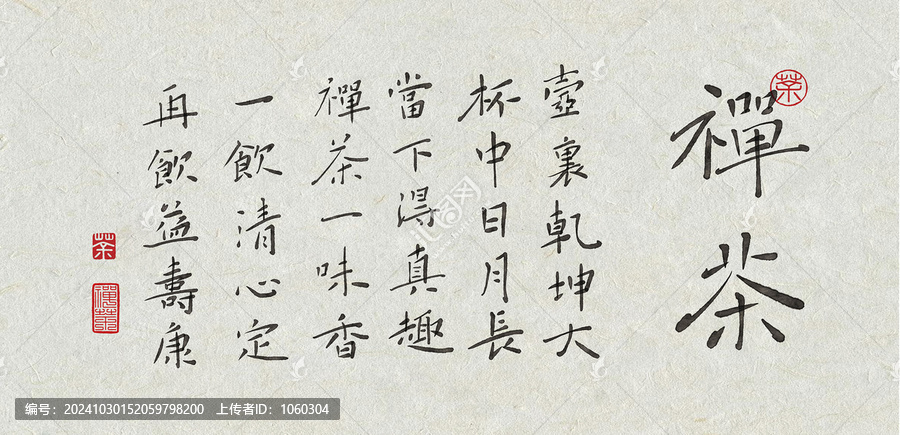 禪茶
壺裏乾坤大
杯中日月長
當下得真趣
禪茶一味香
一飲清心定
再飲益壽康
茶
茶
禪茶
编号：20241030152059798200 上传者ID：1060304